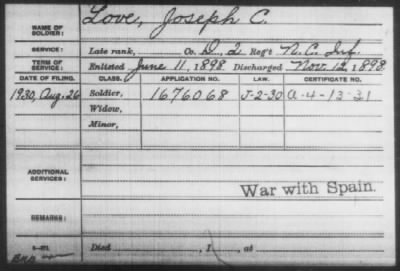 NAME OF SOLDIER: Love, Joseph C.
SERVICE: Late rank, Co. D, 2 Reg't N.C. Inf.
TERM OF SERVICE: Enlisted June 11, 1898 Discharged Nov. 12, 1898
DATE OF FILING. CLASS. APPLICATION NO. LAW. CERTIFICATE NO.
1930, Aug. 26 Soldier, 1676068 J-2-30 A-4-13-31
Widow,
Minor,
ADDITIONAL SERVICES:
War with Spain.
REMARKS:
Died , 1 , at